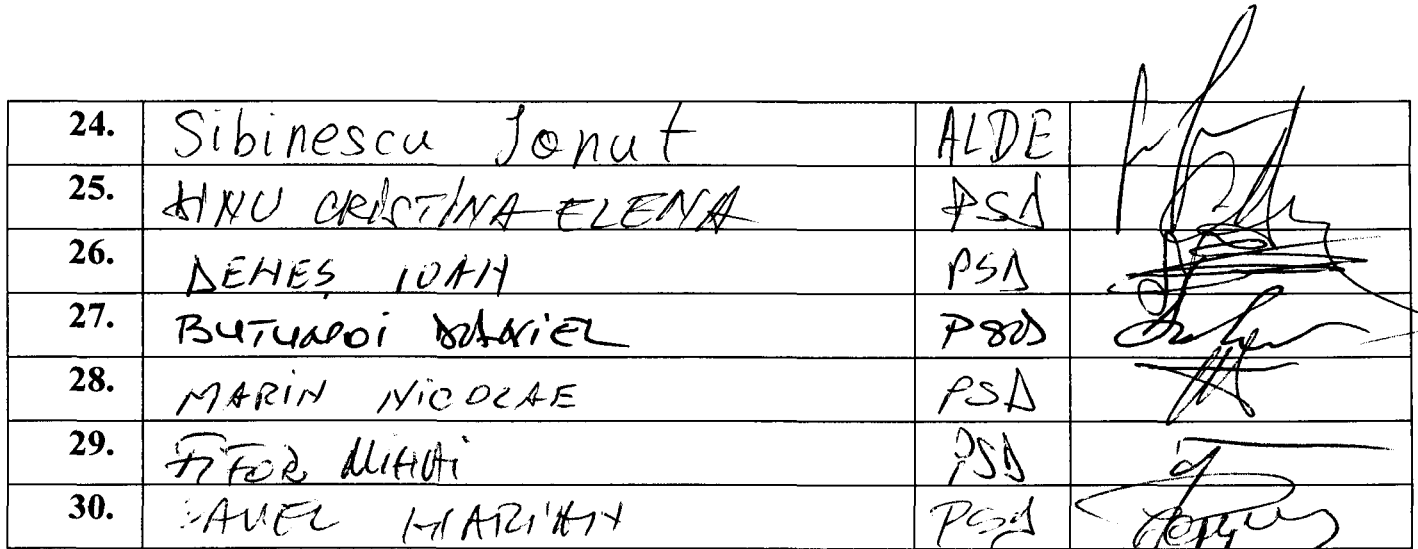 24. Sibinescu Ionut ALDE
25. DINU CRISTINA-ELENA PSD
26. DEHEȘ IOAN PSD
27. BUTUNOI DANIEL PSD
28. MARIN NICOLAE PSD
29. FIFOR MIHAI PSD
30. PAVEL MARIAN PSD